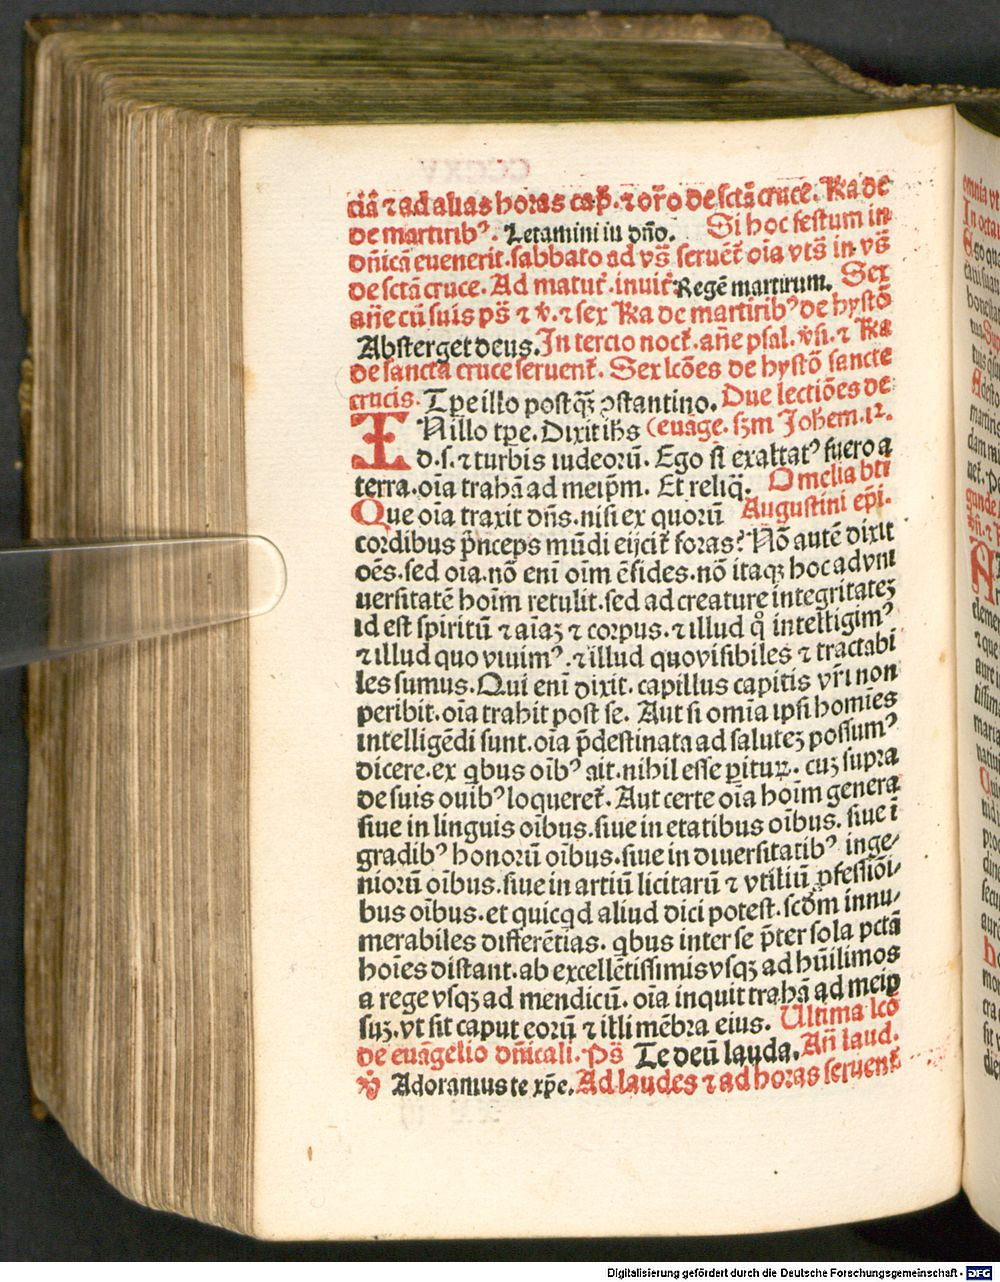 ciā ⁊ ad alias horas cap̄. ⁊ or̄o de sctā cruce. R̄a de
de martirib⁹. Letamini in dn̄o. Si hoc festum in
dn̄icā euenerit. sabbato ad vs̄ seruēt̄ oīa vts̄ in vs̄
de sctā cruce. Ad matut̄. inuit̄ Regē martirum. Sex
an̄e cū suis ps̄ ⁊ v̄. ⁊ sex R̄a de martirib⁹ de hystō
Absterget deus. In tercio noct̄. an̄e psal. v̄si. ⁊ R̄a
de sancta cruce seruent̄. Sex lcōes de hystō sancte
crucis. Tp̄e illo postqꝫ ꝯstantino. Due lectiōes de
IN illo tp̄e. Dixit ih̄s (euāge. sꝫm Joh̄em. 12.
d. s. ⁊ turbis iudeorū. Ego si exaltat⁹ fuero a
terra. oīa trahā ad meip̄m. Et reliq̄. Omelia bt̄i
Que oīa traxit dn̄s. nisi ex quorū Augustini ep̄i.
cordibus p̄nceps mūdi eijcit̄ foras? Nō autē dixit
oēs. sed oīa. nō enī oīm ē fides. nō itaqꝫ hoc ad vni
uersitatē hoīm retulit. sed ad creature integritateꝫ
id est spiritū ⁊ aīaꝫ ⁊ corpus. ⁊ illud qͦ intelligim⁹
⁊ illud quo viuim⁹. ⁊ illud quo visibiles ⁊ tractabi
les sumus. Qui enī dixit. capillus capitis vr̄i non
peribit. oīa trahit post se. Aut si omīa ipsi homīes
intelligēdi sunt. oīa p̄destinata ad saluteꝫ possum⁹
dicere. ex qbus oīb⁹ ait. nihil esse ꝑituꝝ. cuꝫ supra
de suis ouib⁹ loqueret̄. Aut certe oīa hoīm genera
siue in linguis oībus. siue in etatibus oībus. siue ī
gradib⁹ honorū oībus. siue in diuersitatib⁹ inge⸗
niorū oībus. siue in artiū licitarū ⁊ vtiliū ꝓfessiōi⸗
bus oībus. et quicqd aliud dici potest. scd̄m innu⸗
merabiles differētias. qbus inter se p̄ter sola pctā
hoīes distant. ab excellētissimis vsqꝫ ad hūilimos
a rege vsqꝫ ad mendicū. oīa inquit trahā ad meip
suꝫ. vt sit caput eorū ⁊ illi mēbra eius. Ultima lcō
de euāgelio dn̄icali. Ps̄ Te deū lauda. An̄ laud.
v̄ Adoramus te xp̄e. Ad laudes ⁊ ad horas seruent̄
Digitalisierung gefördert durch die Deutsche Forschungsgemeinschaft - DFG